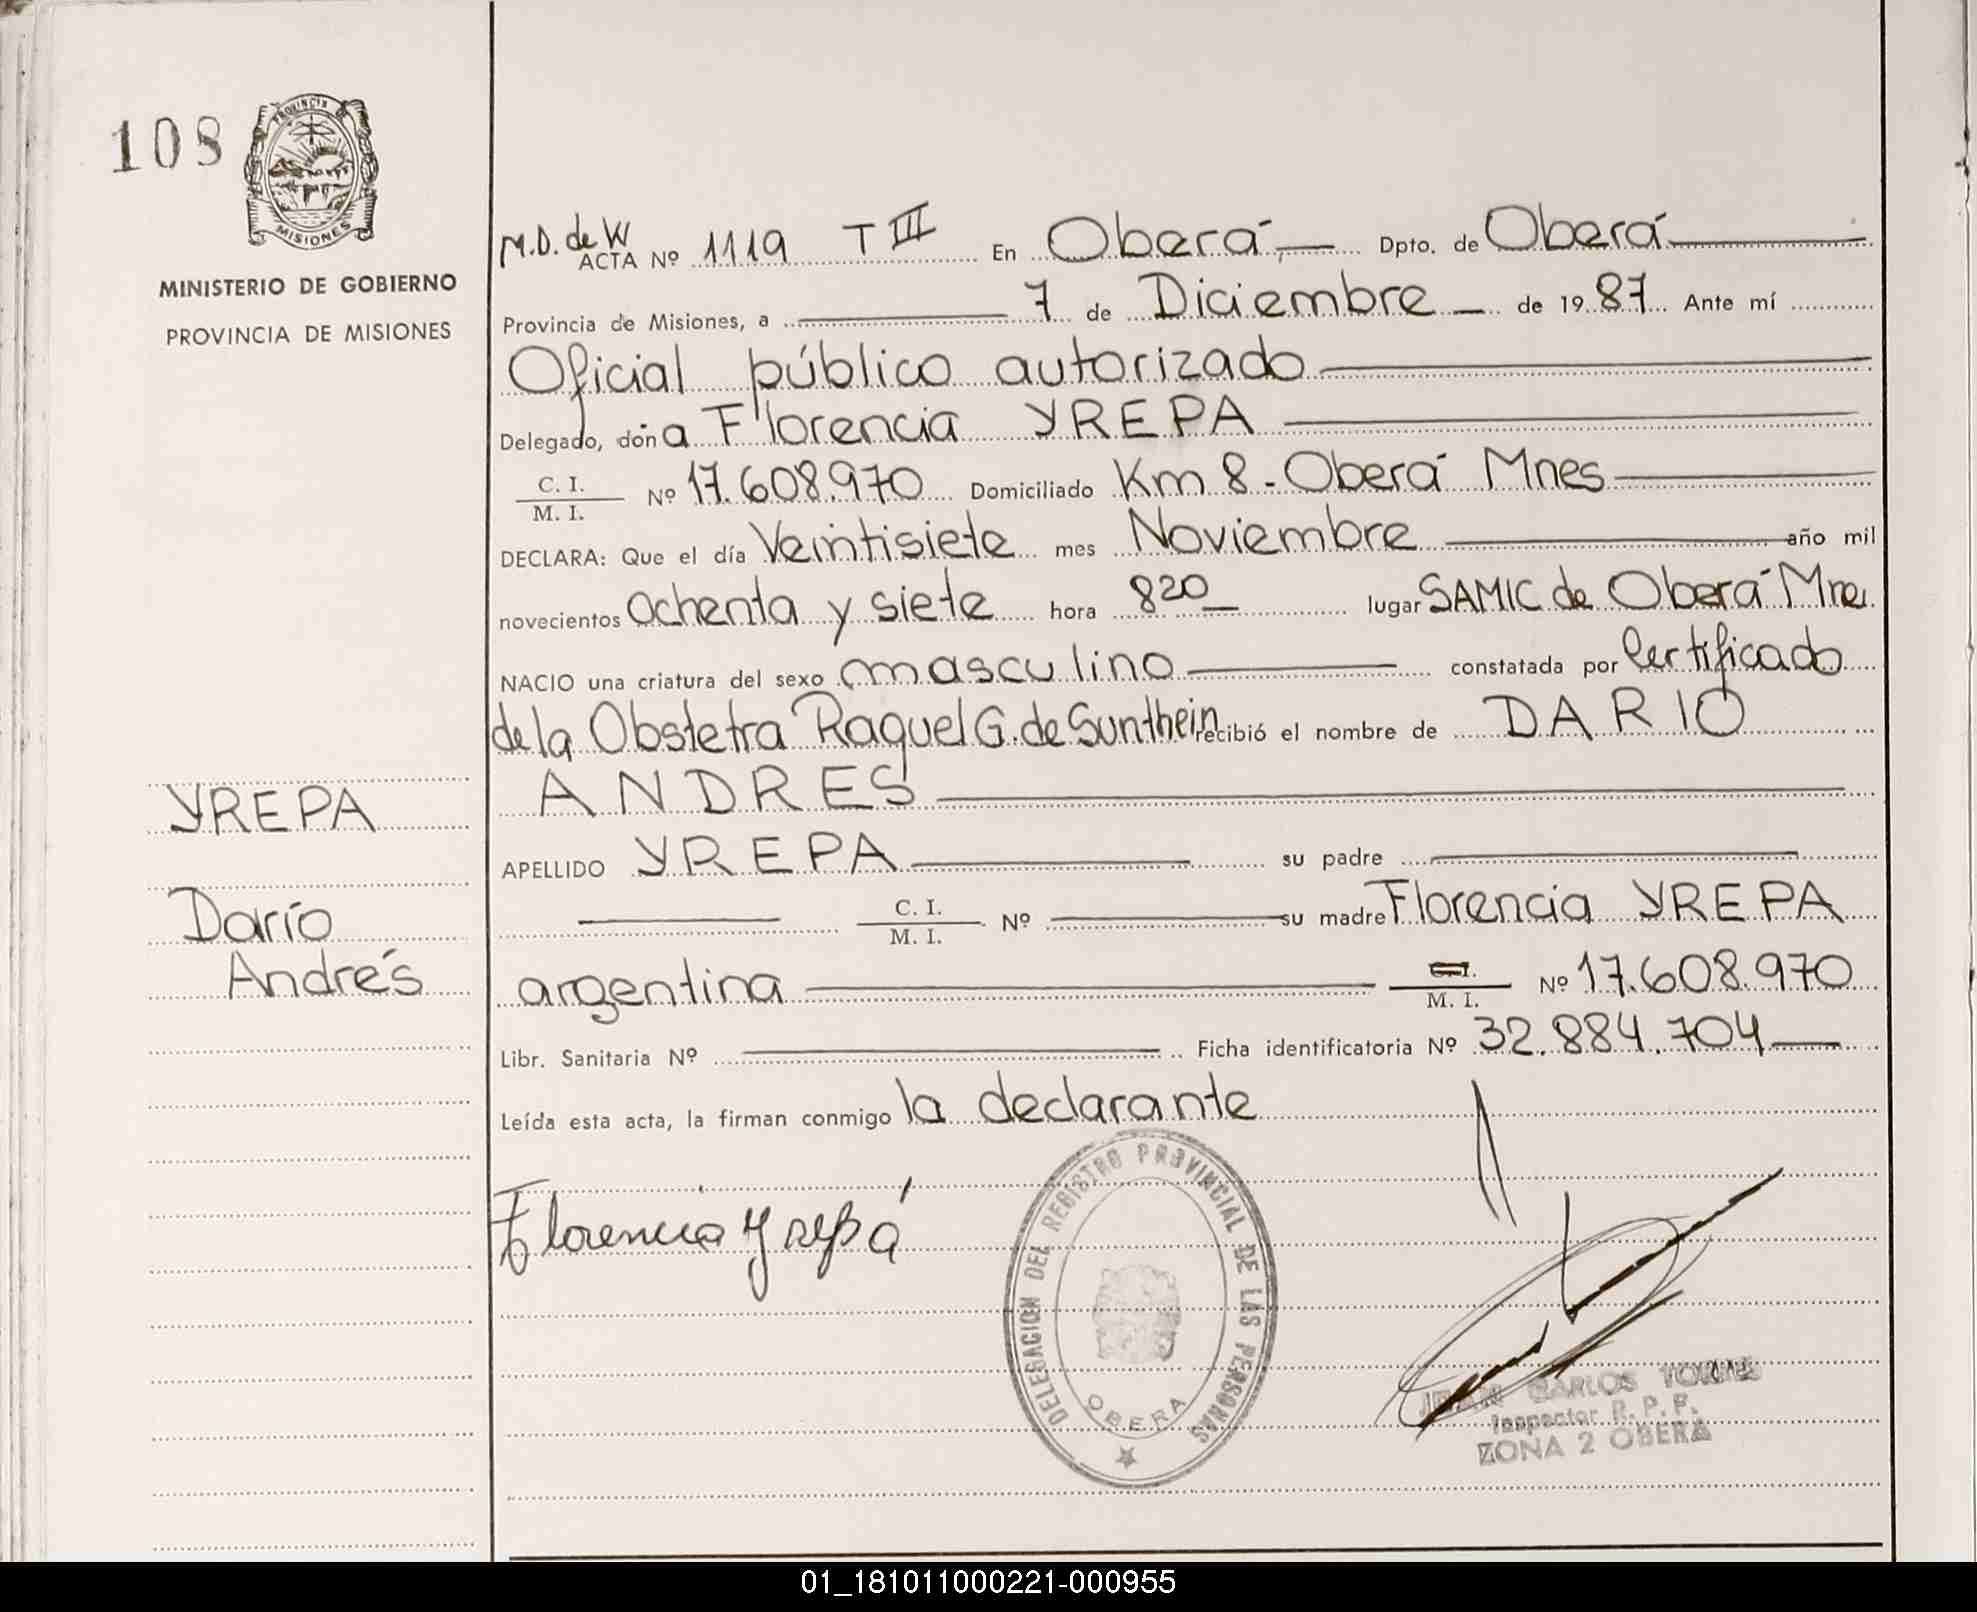 108
PROVINCIA
MISIONES
MINISTERIO DE GOBIERNO
PROVINCIA DE MISIONES
YREPA
Darío
Andrés
M.D. de W
ACTA Nº 1119 T III En Oberá, Dpto. de Oberá
Provincia de Misiones, a 7 de Diciembre de 1987 Ante mí
Oficial público autorizado
Delegado, doña Florencia YREPA
C. I.
M. I.
Nº 17.608.970 Domiciliado Km 8 - Oberá Mnes
DECLARA: Que el día Veintisiete mes Noviembre año mil
novecientos Ochenta y siete hora 820 lugar SAMIC de Oberá Mnes.
NACIO una criatura del sexo masculino constatada por Certificado
de la Obstetra Raquel G. de Sunthein recibió el nombre de DARIO
ANDRES
APELLIDO YREPA su padre
C. I.
M. I.
Nº su madre Florencia YREPA
argentina C.I.
M. I.
Nº 17.608.970
Libr. Sanitaria Nº Ficha identificatoria Nº 32.884.704
Leída esta acta, la firman conmigo la declarante
Florencia Yrepá
DELEGACION DEL REGISTRO PROVINCIAL DE LAS PERSONAS
OBERA
JUAN CARLOS TORRES
Inspector R. P. P.
ZONA 2 OBERA
01_181011000221-000955